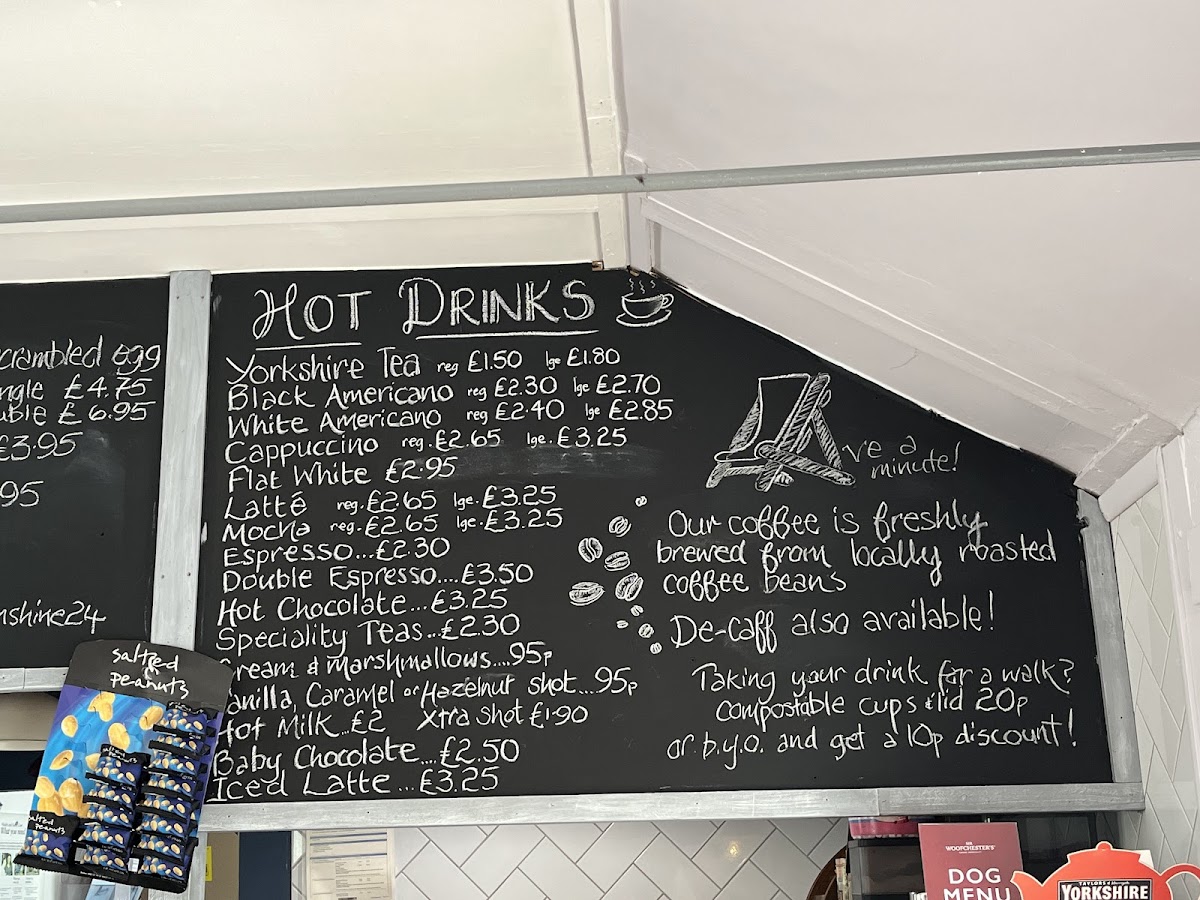 scrambled egg
£4.75
£6.95
£3.95
95
nshine24
HOT DRINKS
Yorkshire Tea reg £1.50 lge £1.80
Black Americano reg £2.30 lge £2.70
White Americano reg £2.40 lge £2.85
Cappuccino reg. £2.65 lge. £3.25
Flat White £2.95
Latté reg. £2.65 lge. £3.25
Mocha reg. £2.65 lge. £3.25
Espresso...£2.30
Double Espresso....£3.50
Hot Chocolate...£3.25
Speciality Teas...£2.30
Cream & Marshmallows....95p
Vanilla, Caramel or Hazelnut shot...95p
Hot Milk...£2 Xtra Shot £1.90
Baby Chocolate....£2.50
Iced Latte ...£3.25
've a
minute!
Our coffee is freshly
brewed from locally roasted
coffee beans
De-caff also available!
Taking your drink for a walk?
compostable cups & lid 20p
or b.y.o. and get a 10p discount!
salted
peanuts
salted
peanuts
WOOFCHESTER'S
DOG
MENU
TAYLORS of Harrogate
YORKSHIRE